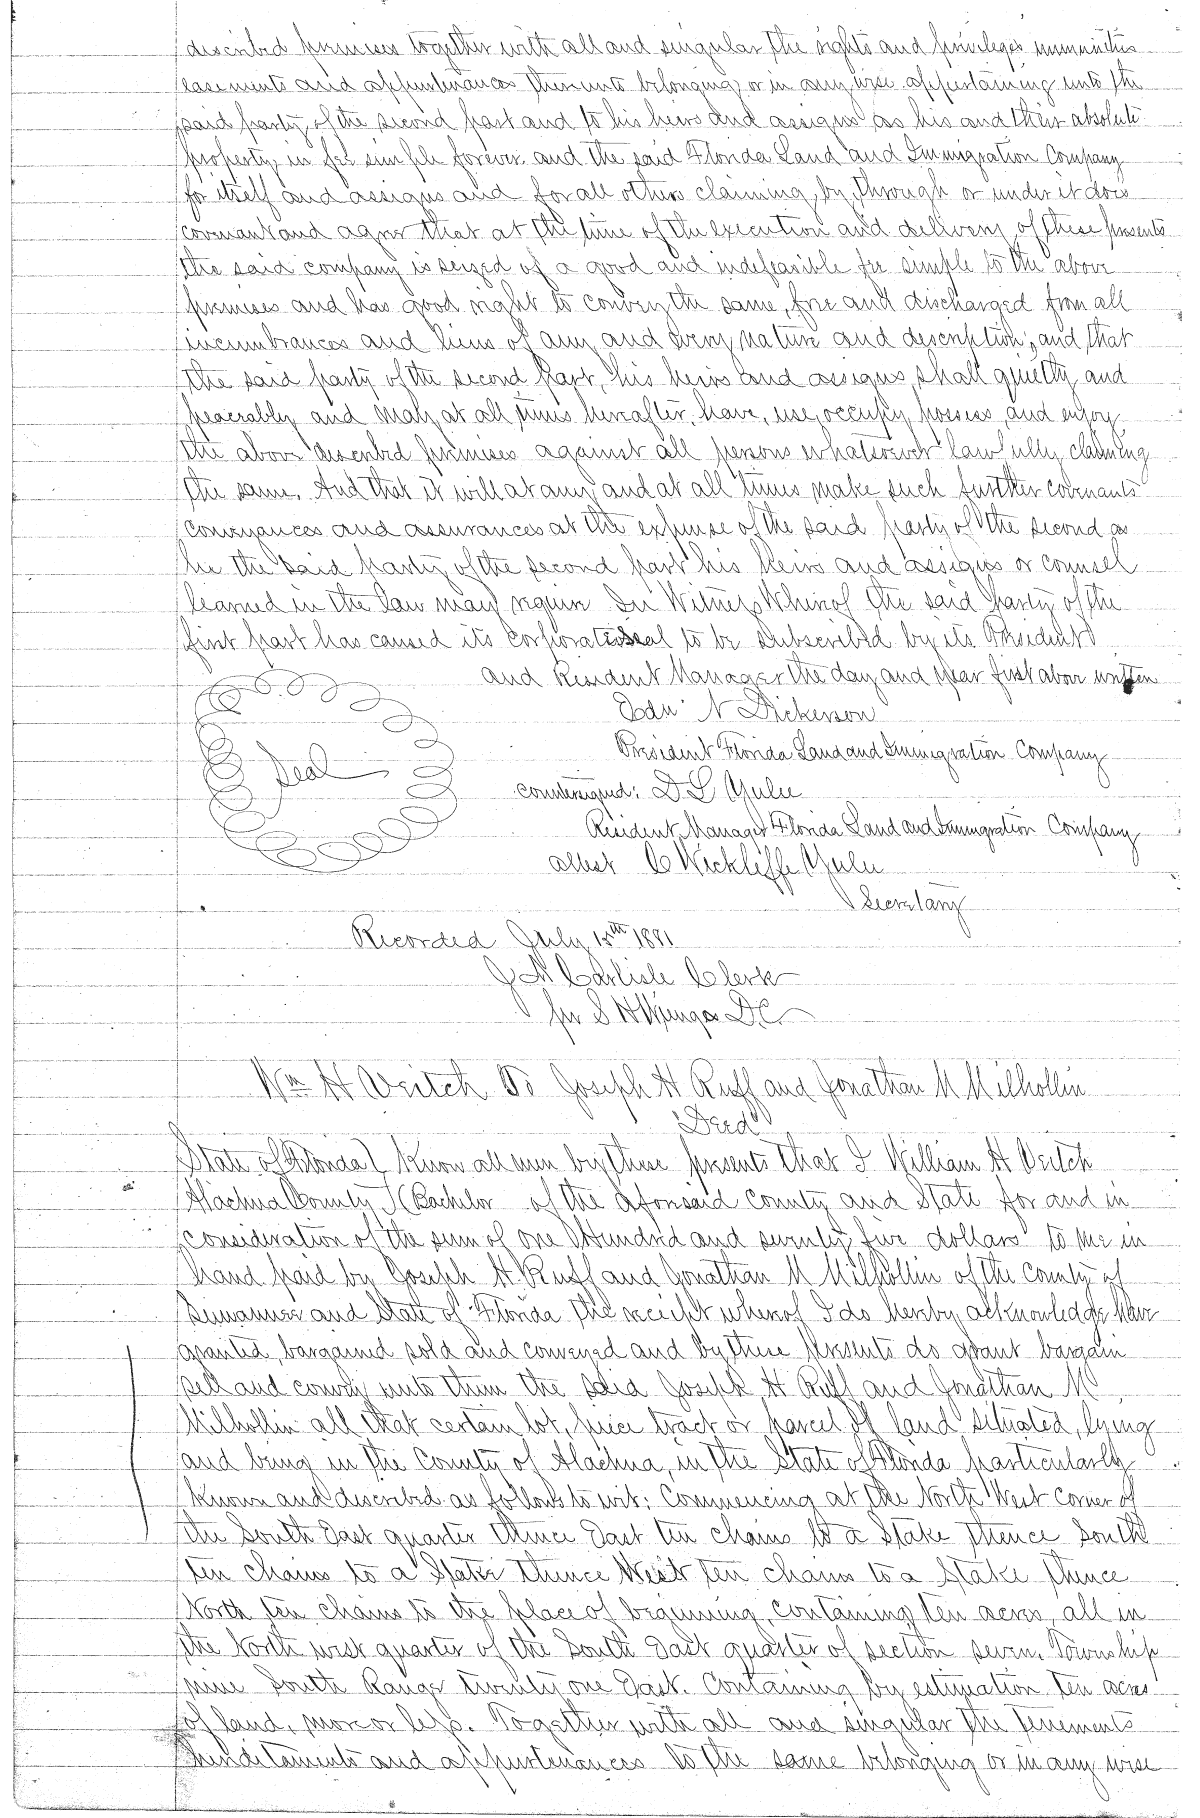 described premises together with all and singular the rights and privileges immunities
easements and appurtenances thereunto belonging or in any wise appertaining unto the
said party of the second part and to his heirs and assigns as his and their absolute
property in fee simple forever. and the said Florida Land and Immigration Company
for itself and assigns and for all others claiming, by, through or under it does
covenant and agree that at the time of the execution and delivery of these presents
the said company is seized of a good and indefeasible fee simple to the above
premises and has good right to convey the same, free and discharged from all
incumbrances and liens of any and every nature and description, and, that
the said party of the second part, his heirs and assigns, shall quietly and
peaceably and may, at all times hereafter, have, use, occupy, possess, and enjoy
the above described premises against all persons whatsoever lawfully claiming
the same. And that it will at any and at all times make such further covenants
conveyances and assurances at the expense of the said party of the second as
he the said party of the second part his heirs and assigns or counsel
learned in the law may require In Witness Whereof the said party of the
first part has caused its corporate Seal to be subscribed by its President
and Resident Manager the day and year first above written
Edw N Dickerson
President Florida Land and Immigration Company
Seal
countersigned: D L Yulee
Resident Manager Florida Land and Immigration Company
attest C Wickliffe Yulee
Secretary
Recorded July 15th 1881
J A Carlisle Clerk
per S H Wienges D.C.
Wm H Veitch To Joseph H Ruff and Jonathan M Milhollin
Deed
State of Florida } Know all men by these presents that I William H Veitch
Alachua County } (Bachelor of the aforesaid county and State for and in
consideration of the sum of one Hundred and seventy five dollars to me in
hand paid by Joseph H Ruff and Jonathan M Milhollin of the county of
Suwannee and State of Florida the receipt whereof I do hereby acknowledge have
granted, bargained sold and conveyed and by these presents do grant bargain
sell and convey unto them the said Joseph H Ruff and Jonathan M
Milhollin all that certain lot, piece tract or parcel of land situated, lying
and being in the County of Alachua, in the State of Florida particularly
known and described as follows to wit: Commencing at the North West corner of
the South East quarter thence East ten chains to a Stake thence South
ten chains to a Stake thence West ten chains to a Stake thence
North ten chains to the place of beginning, containing ten acres, all in
the North west quarter of the South East quarter of section seven, Township
nine South Range twenty one East. Containing by estimation ten acres
of land, more or less. Together with all and singular the tenements
hereditaments and appurtenances to the same belonging or in any wise